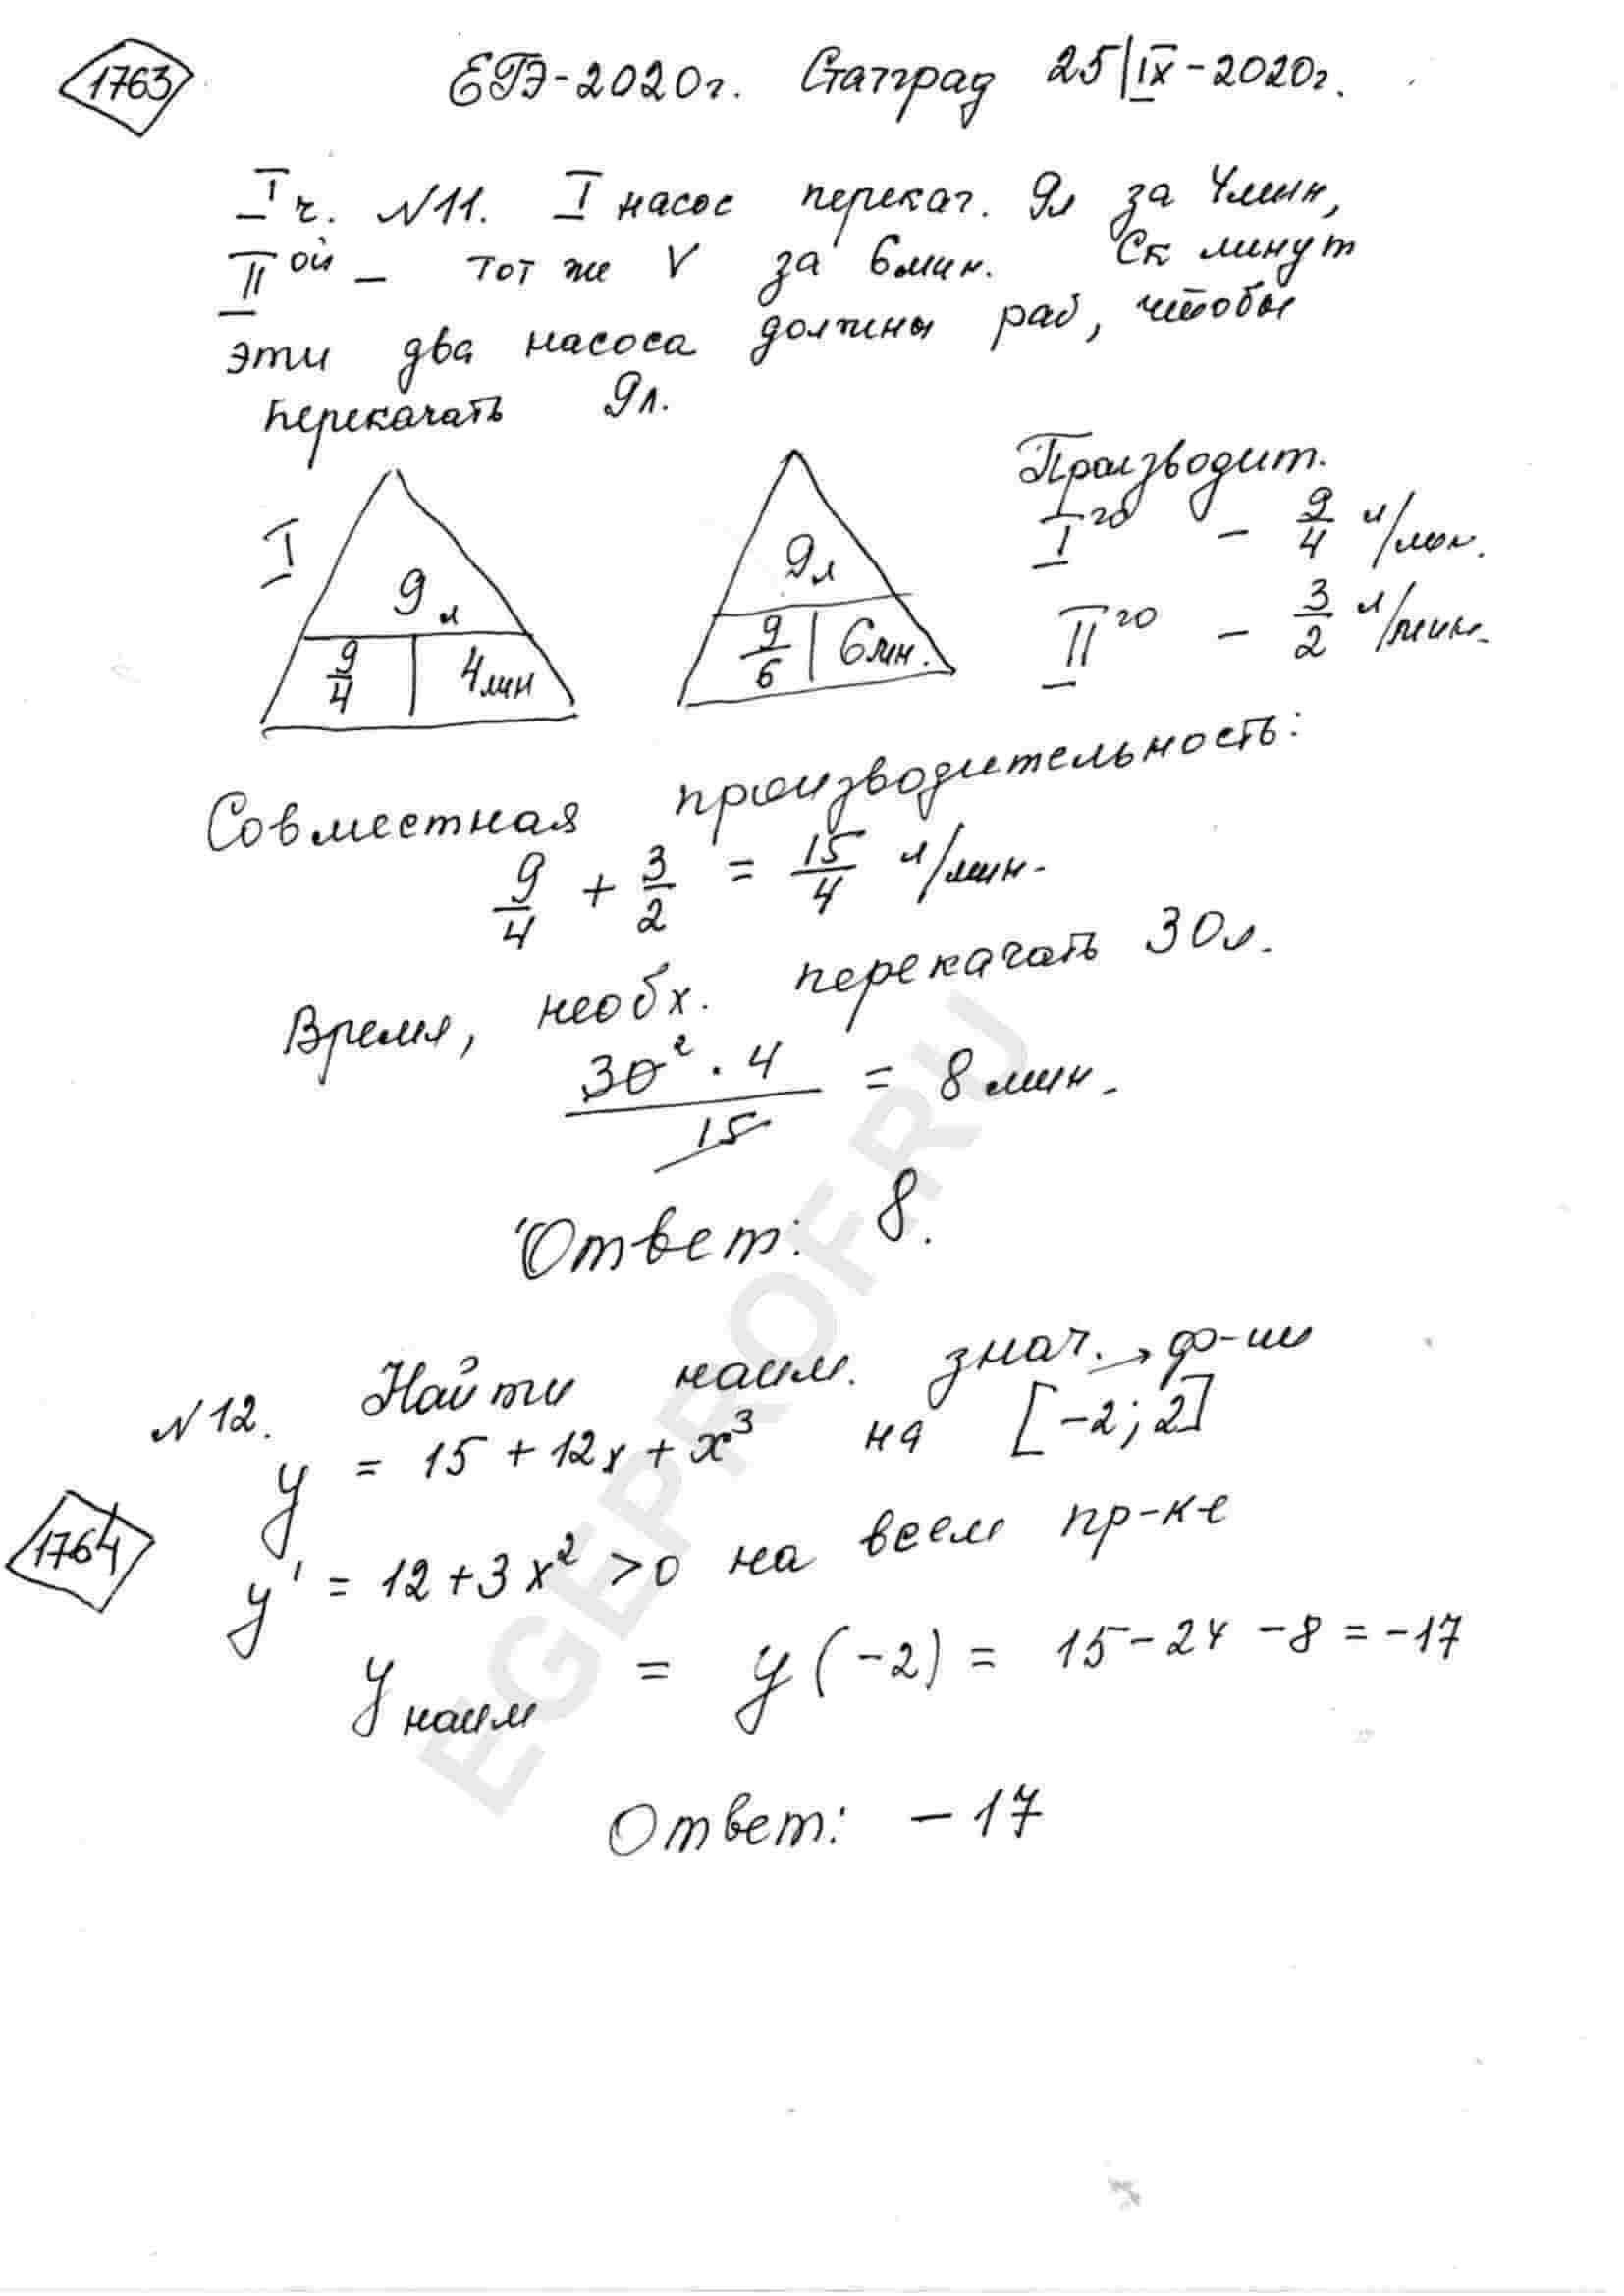 1763
ЕГЭ-2020г. Статград 25|IX-2020г.
I ч. №11. I насос перекач. 9л за 4мин,
II ой - тот же V за 6мин. Ск минут
эти два насоса должны раб, чтобы
перекачать 9л.
I
9 л
9/4 | 4мин
9л
9/6 | 6мин.
Производит.
I го - 9/4 л/мин.
II го - 3/2 л/мин.
Совместная производительность:
9/4 + 3/2 = 15/4 л/мин.
Время, необх. перекачать 30л.
30² · 4 / 15 = 8 мин.
Ответ: 8.
№12. Найти наим. знач. → ф-ии
y = 15 + 12x + x³ на [-2; 2]
1764
y' = 12 + 3x² > 0 на всем пр-ке
y наим = y(-2) = 15 - 24 - 8 = -17
Ответ: -17
EGEPROF.RU